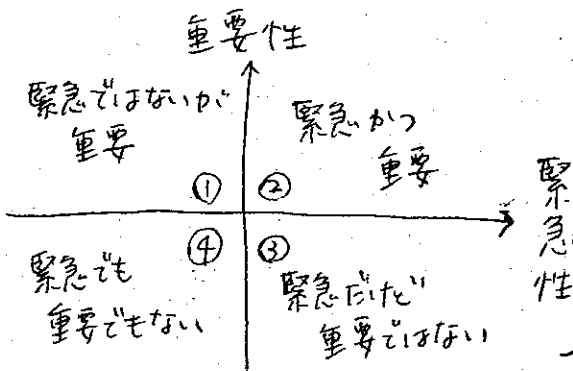 重要性
緊急ではないが
重要
緊急かつ
重要
① ②
緊急性
④ ③
緊急でも
重要でもない
緊急だけど
重要ではない